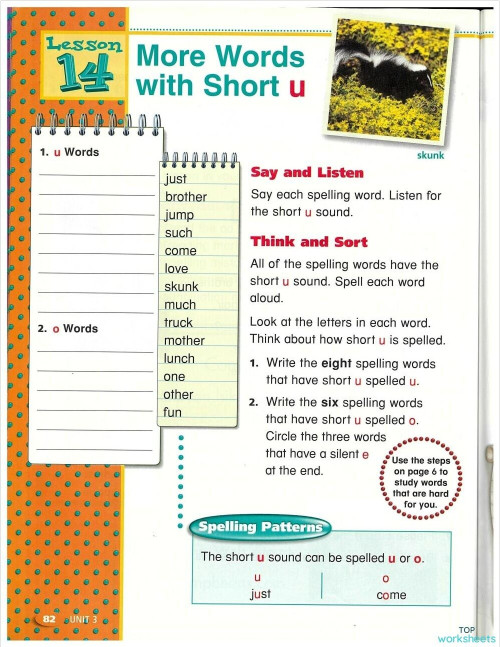 Lesson
14
More Words
with Short u
skunk
1. u Words
2. o Words
just
brother
jump
such
come
love
skunk
much
truck
mother
lunch
one
other
fun
Say and Listen
Say each spelling word. Listen for
the short u sound.
Think and Sort
All of the spelling words have the
short u sound. Spell each word
aloud.
Look at the letters in each word.
Think about how short u is spelled.
1. Write the eight spelling words
that have short u spelled u.
2. Write the six spelling words
that have short u spelled o.
Circle the three words
that have a silent e
at the end.
Use the steps
on page 6 to
study words
that are hard
for you.
Spelling Patterns
The short u sound can be spelled u or o.
u o
just come
82 UNIT 3
TOP
worksheets